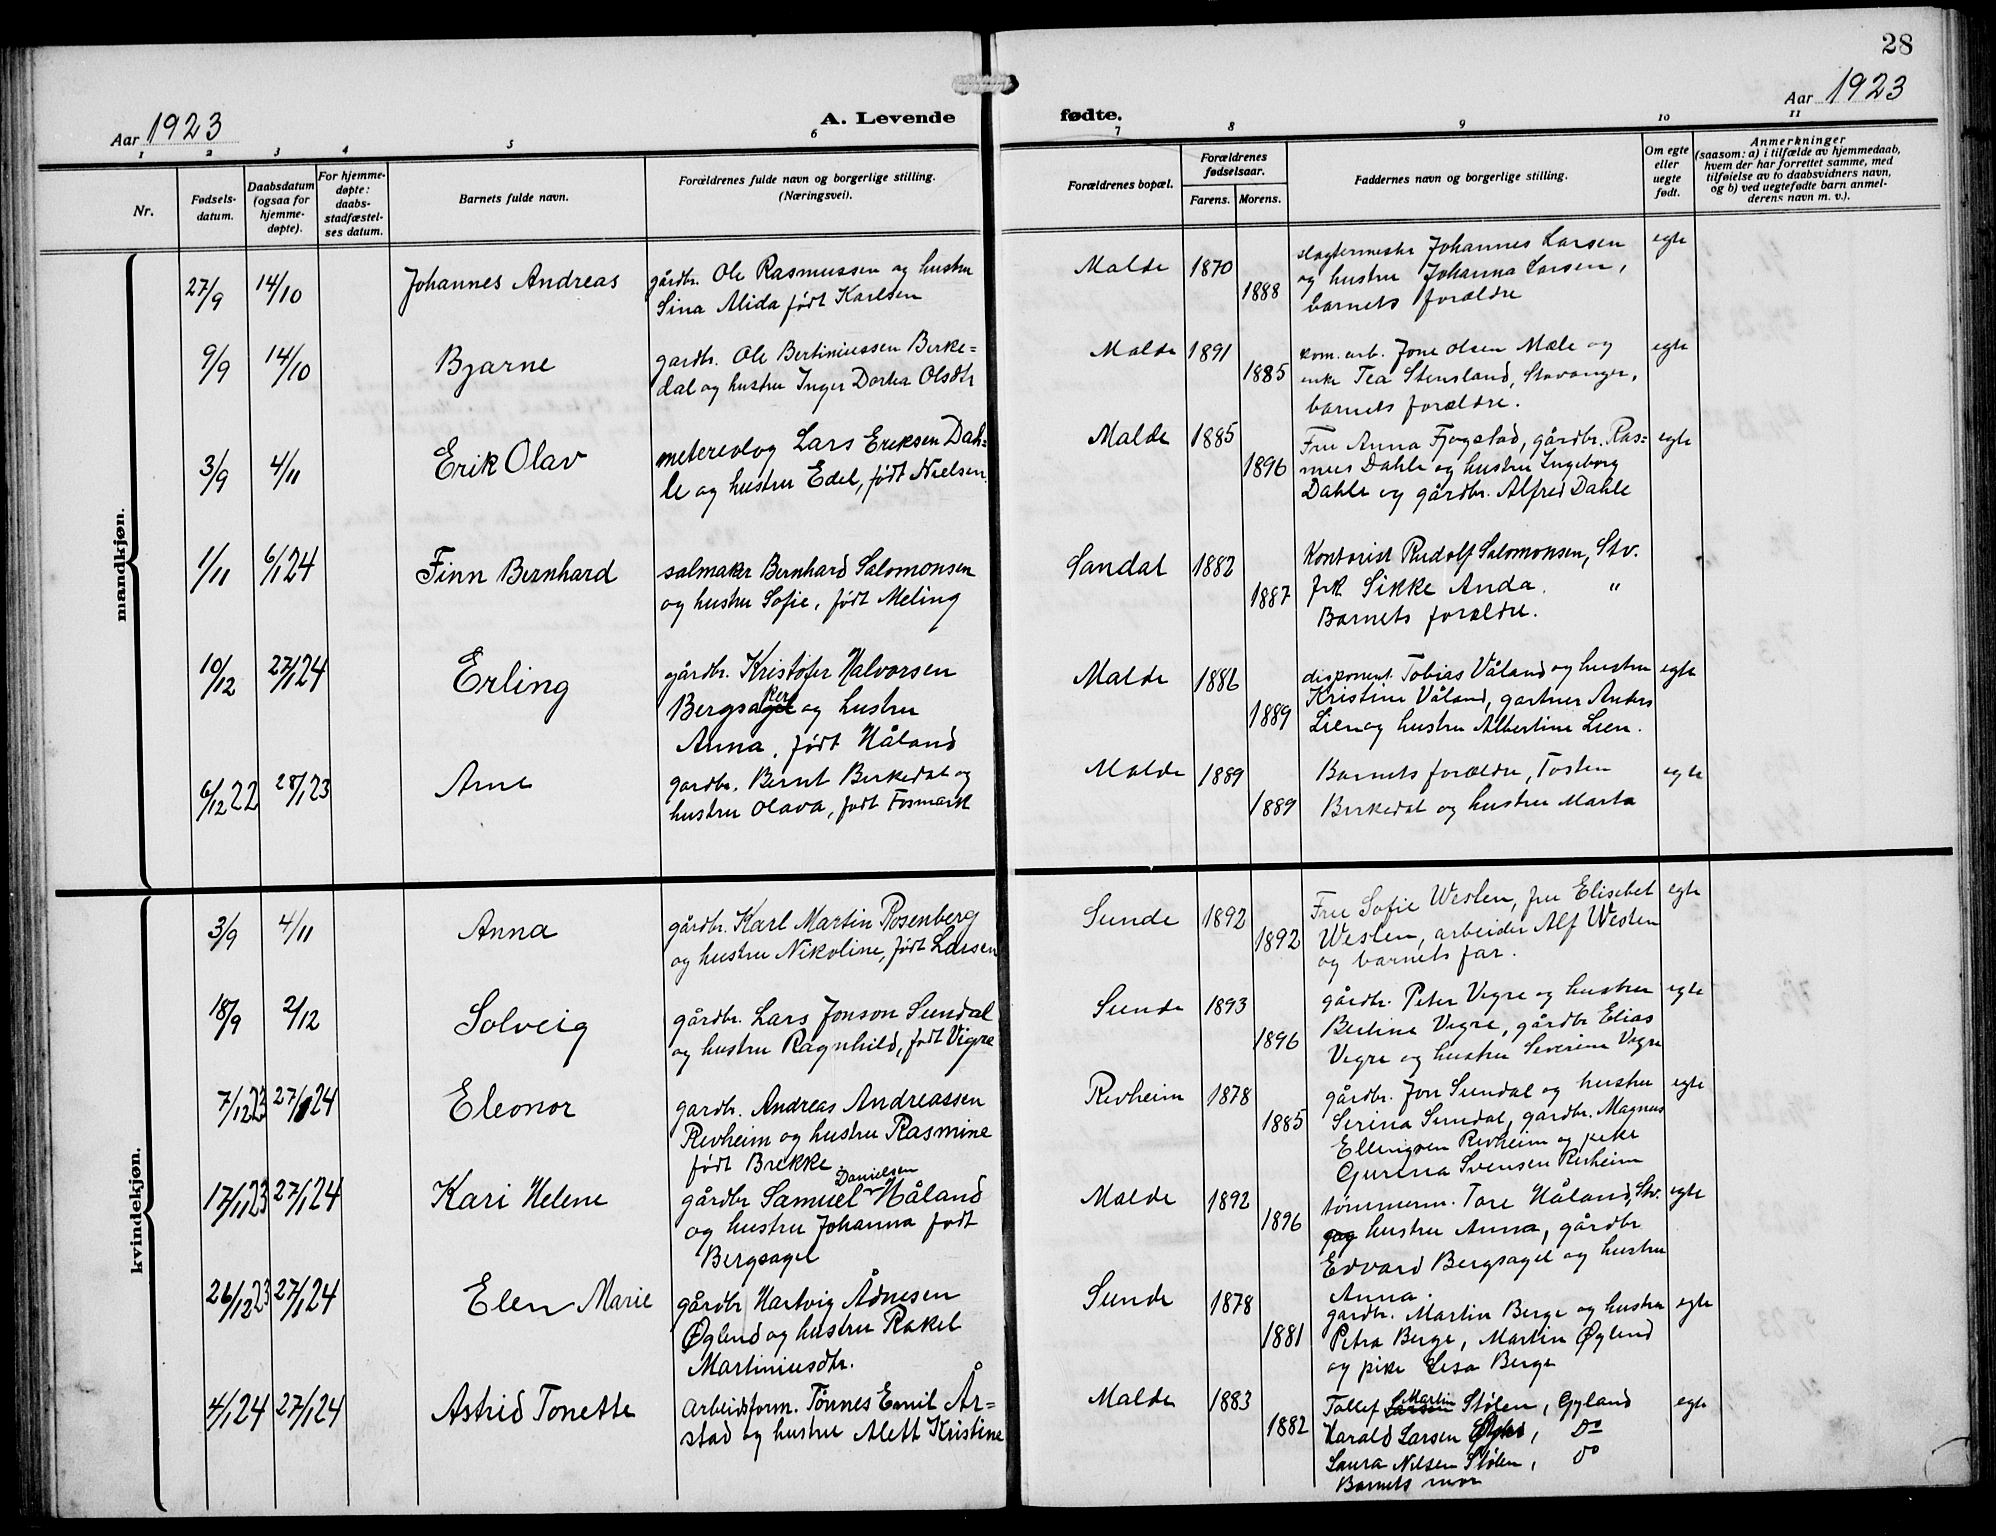 28
Aar 1923
A. Levende fødte.
Aar 1923
1 2 3 4 5 6 7 8 9 10 11
Nr.
Fødsels-
datum.
Daabsdatum
(ogsaa for
hjemme-
døpte).
For hjemme-
døpte:
daabs-
stadfæstel-
ses datum.
Barnets fulde navn.
Forældrenes fulde navn og borgerlige stilling.
(Næringsvei).
Forældrenes bopæl.
Forældrenes
fødselsaar.
Farens. Morens.
Faddernes navn og borgerlige stilling.
Om egte
eller
uegte
født.
Anmerkninger
(saasom: a) i tilfælde av hjemmedaab,
hvem der har forrettet samme, med
tilføielse av to daabsvidners navn,
og b) ved uegtefødte barn anmel-
derens navn m. v.).
mandkjøn.
27/9 14/10 Johannes Andreas
gårdbr. Ole Rasmussen og hustru
Sina Alida født Karlsen
Malde 1870 1888
slagtermester Johannes Larsen
og hustru Johanna Larsen,
barnets forældre
egte
9/9 14/10 Bjarne
gardbr. Ole Bertiniussen Birke=
dal og hustru Inger Dortea Olsdtr
Malde 1891 1885
kom. arb. Jone Olsen Mæle og
enke Tea Stensland, Stavanger,
barnets forældre.
egte
3/9 4/11 Erik Olav
metereolog Lars Eriksen Dah=
le og hustru Edel, født Nielsen.
Malde 1885 1896
Fru Anna Fjogstad, gårdbr. Ras=
mus Dahle og hustru Ingeborg
Dahle og gårdbr. Alfred Dahle
egte
1/11 6/1 24 Finn Bernhard
salmaker Bernhard Salomonsen
og hustru Sofie, født Meling
Sandal 1882 1887
Kontorist Rudolf Salomonsen, Stv.
frk Sikke Anda. "
Barnets forældre.
10/12 27/1 24 Erling
gårdbr. Kristofer Halvorsen
Bergsaker og hustru
Anna, født Håland
Malde 1886 1889
disponent Tobias Våland og hustru
Kristine Våland, gartner Anders
Lien og hustru Albertine Lien.
egte
6/12 22 28/1 23 Arne
gardbr. Bernt Birkedal og
hustru Olava, født Fosmark
Malde 1889 1889
Barnets forældre, Tosten
Birkedal og hustru Marta
egte
kvindekjøn.
3/9 4/11 Anna
gårdbr. Karl Martin Rosenberg
og hustru Nikoline, født Larsen
Sunde 1892 1892
Fru Sofie Westen, fru Elisebet
Westen, arbeider Alf Westen
og barnets far.
egte
18/9 2/12 Solveig
gårdbr. Lars Jonson Sundal
og hustru Ragnhild, født Vigre
Sunde 1893 1896
gårdbr. Peter Vigre og hustru
Bertine Vigre, gårdbr Elias
Vigre og hustru Severine Vigre
egte
7/12 23 27/1 24 Eleonor
gardbr. Andreas Andreassen
Revheim og hustru Rasmine
født Brekke.
Revheim 1878 1885
gårdbr. Jon Sundal og hustru
Serina Sundal, gardbr. Magnus
Ellingsen Revheim og pike
Gurina Svensen Revheim
egte
17/11 23 27/1 24 Kari Helene
gårdbr Samuel Danielsen Håland
og hustru Johanna født
Bergsagel
Malde 1892 1896
tømmerm. Tore Håland, Stv.
og hustru Anna, gårdbr
Edvard Bergsagel og hustru
Anna.
egte
26/12 23 27/1 24 Elen Marie
gårdbr Hartvig Ådnesen
Øglend og hustru Rakel
Martiniusdtr.
Sunde 1878 1881
gardbr. Martin Berge og hustru
Petra Berge, Martin Øglend
og pike Lisa Berge
egte
4/1 24 27/1 24 Astrid Tonette
Arbeidsform. Tønnes Emil År=
stad og hustru Alett Kristine
Malde 1883 1882
Tollef Martin Stølen, Gyland
Harald Larsen, Do
Laura Nilsen Stølen, Do
Barnets mor
egte